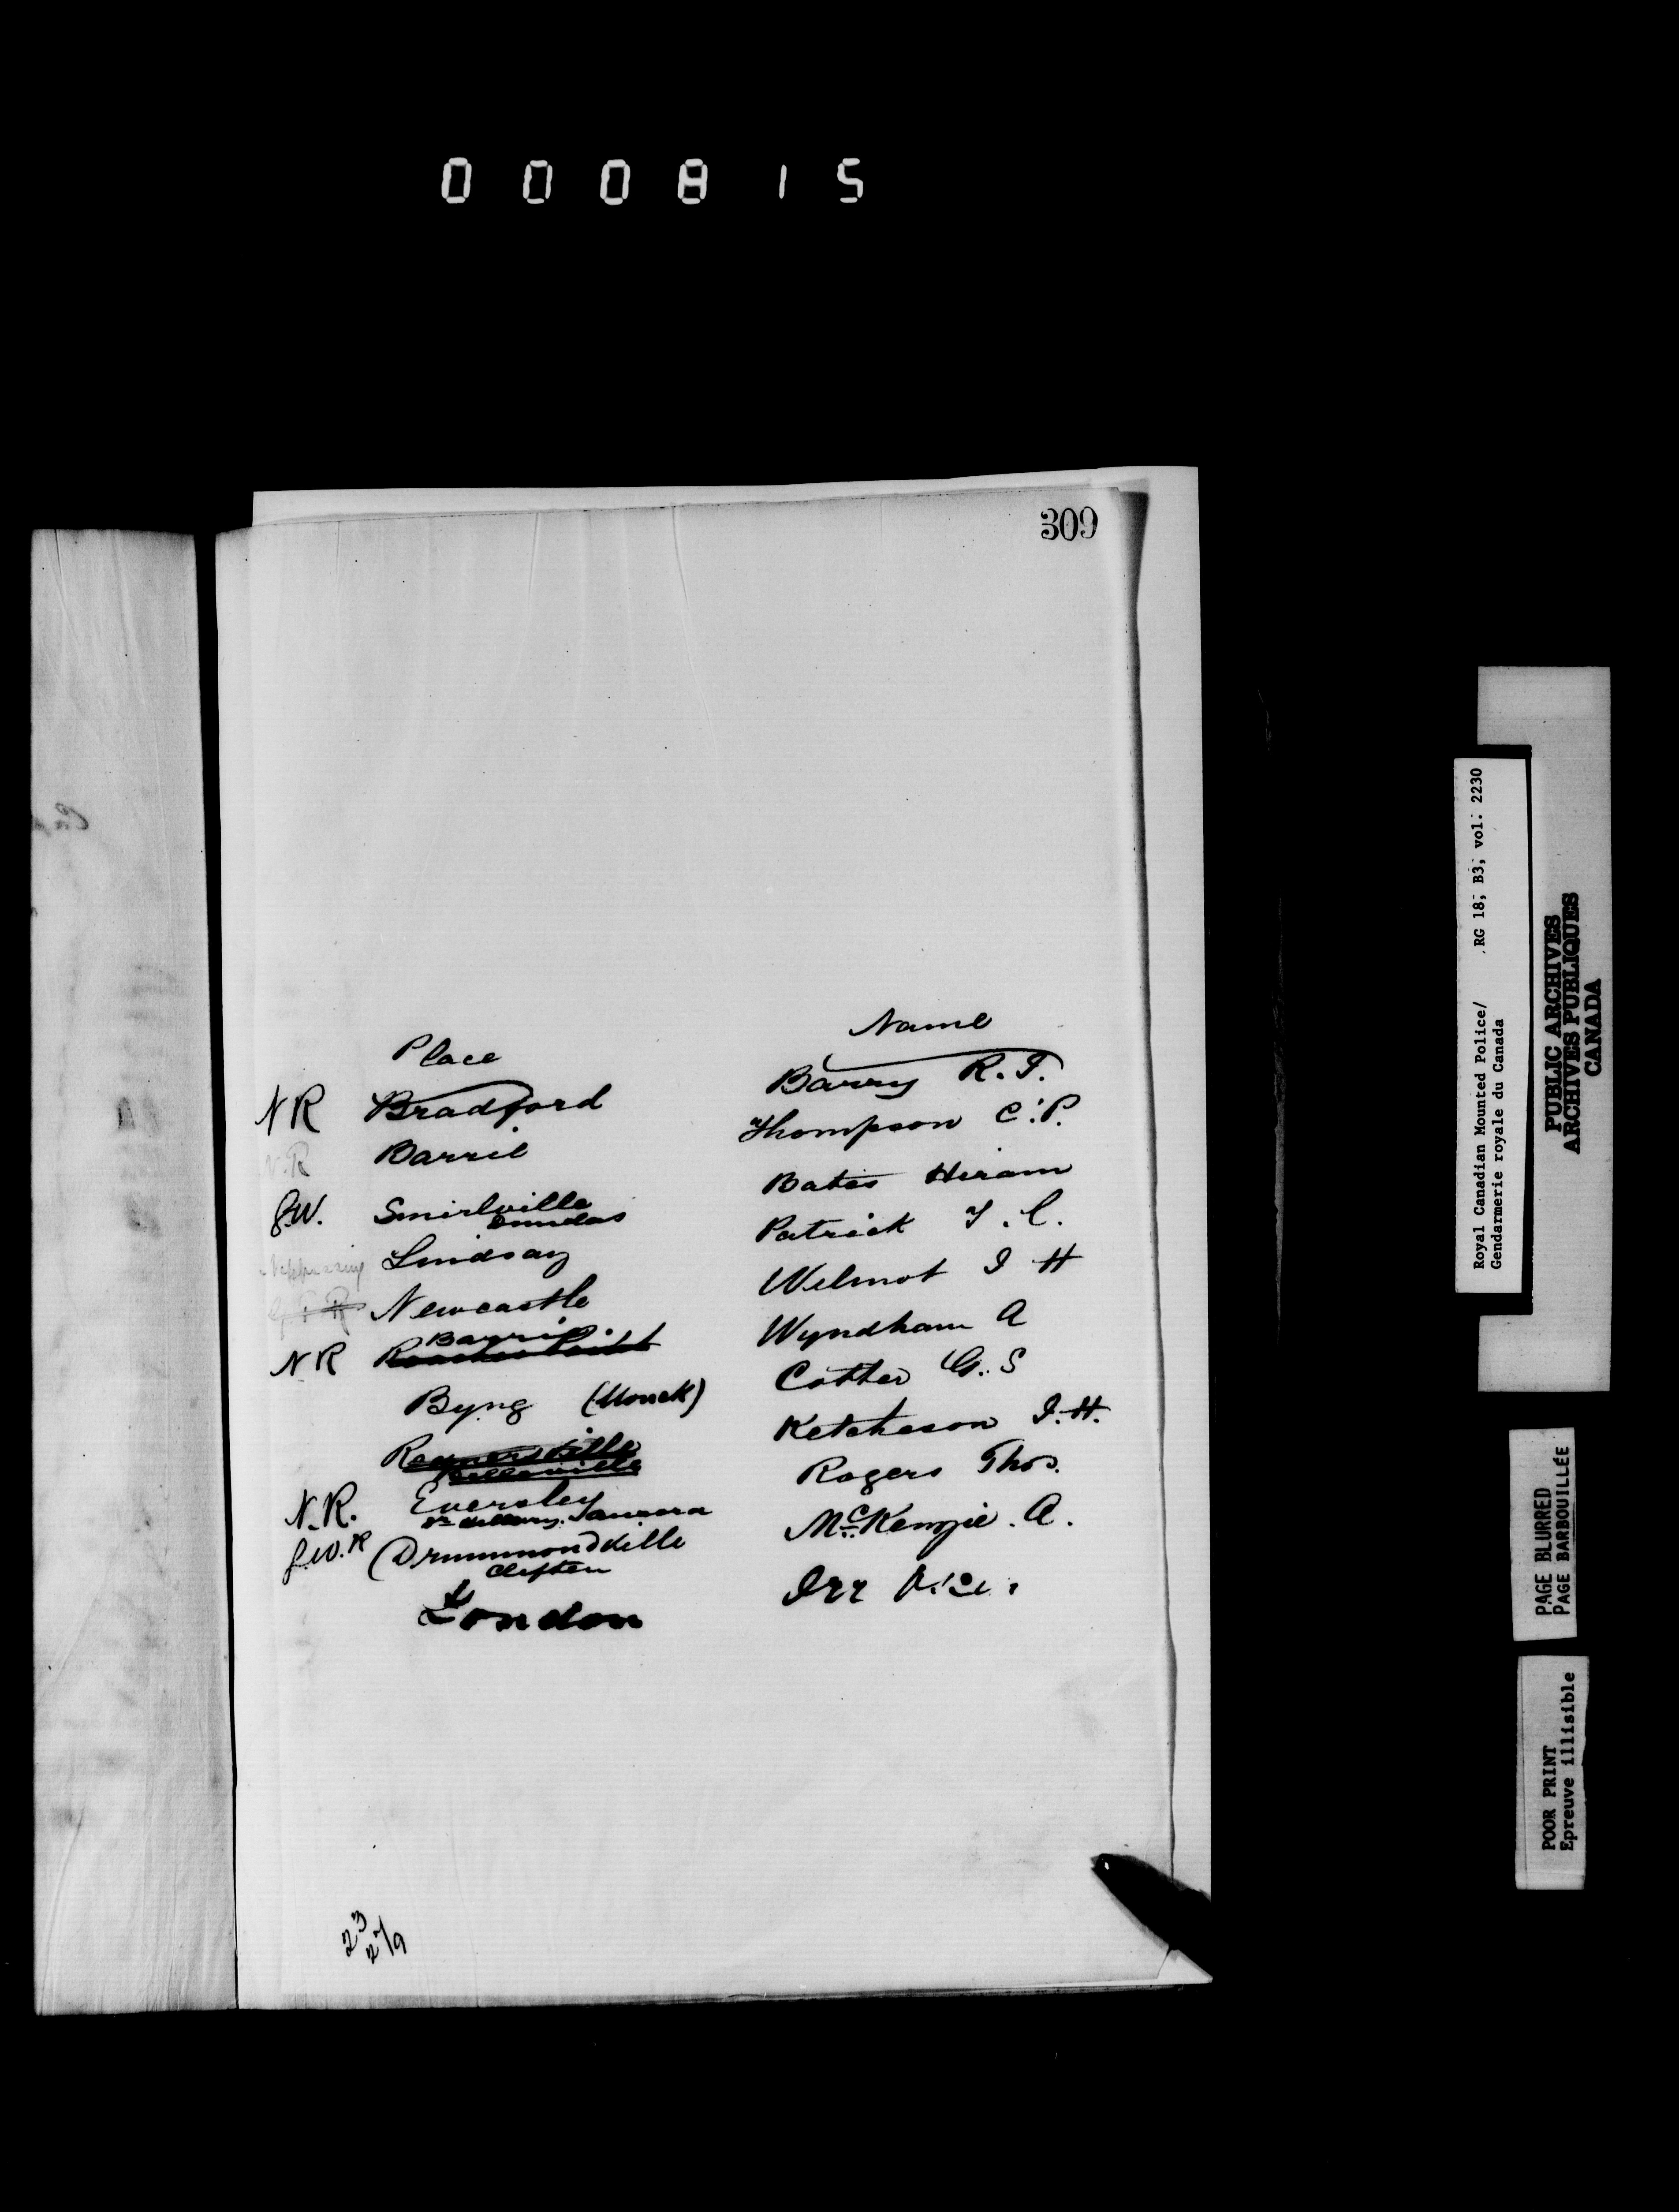 000815
309
Place Name
NR Bradford Barry R.J.
N.R Barrie Thompson C.P.
G.W. Smirlville Bates Hiram
Dundas
Lindsay Patrick T.C.
G T R Newcastle Wilmot J H
Barrie
NR Roaches Point Wyndham A
Byng (Monck) Cotter G.S
Raynersville Ketcheson J.H.
Belleville
N.R. Eversley Rogers Thos.
Aurora
G.W.R (Drummondville McKenzie. A.
Clifton
London
23
27/9
Royal Canadian Mounted Police/ RG 18; B3; vol. 2230
Gendarmerie royale du Canada
PUBLIC ARCHIVES
ARCHIVES PUBLIQUES
CANADA
PAGE BLURRED
PAGE BARBOUILLÉE
POOR PRINT
Epreuve illisible